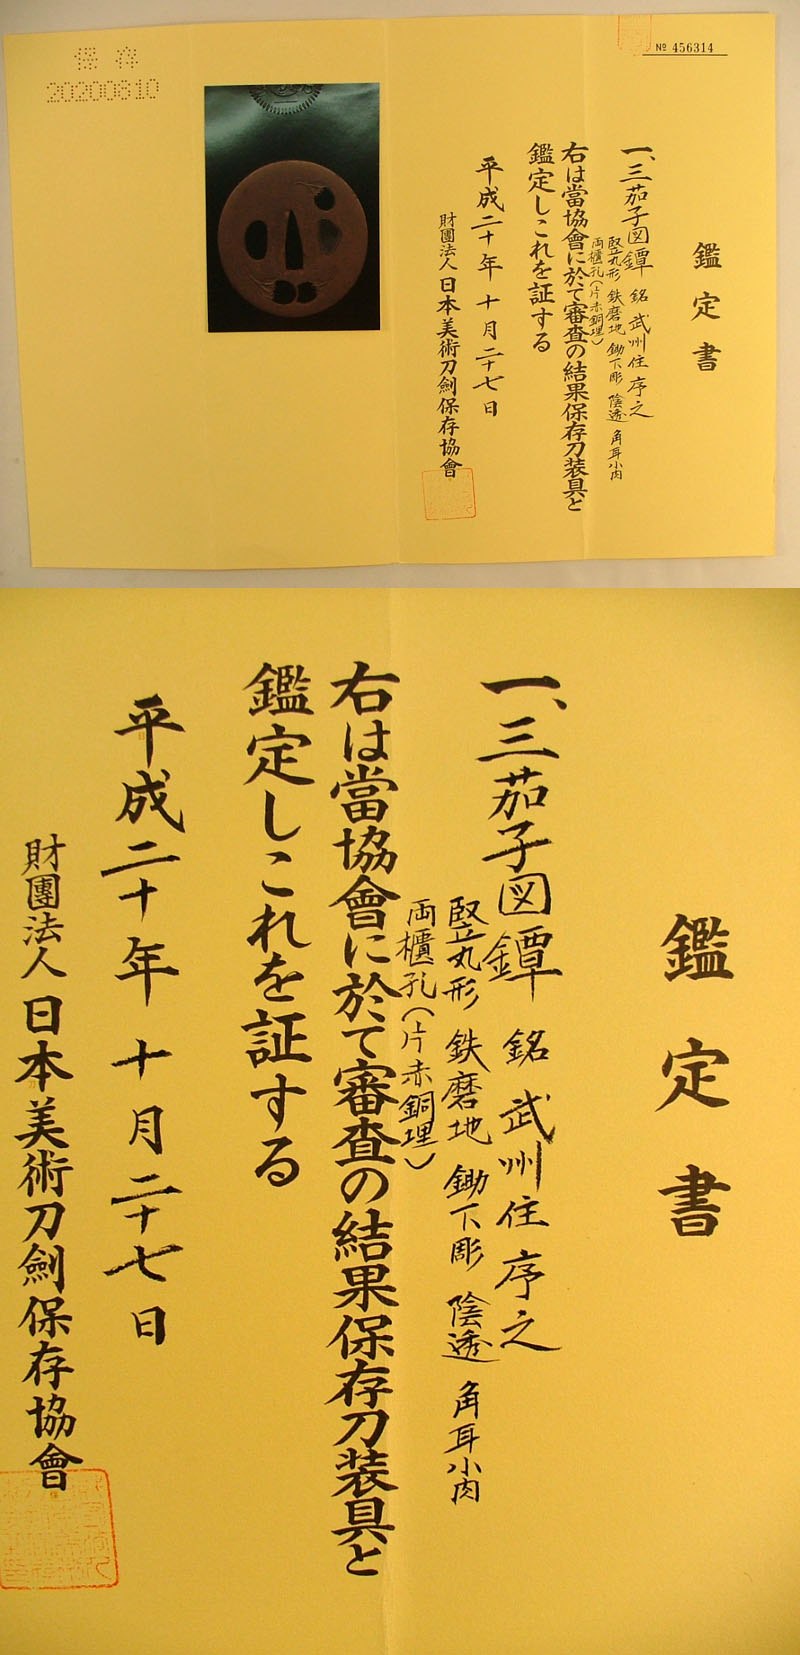 保存
20200810
№ 456314
鑑定書
一、三茄子図鐔 銘 武州住序之
竪丸形 鉄磨地 鋤下彫 陰透 角耳小肉
両櫃孔(片赤銅埋)
右は當協會に於て審査の結果保存刀装具と
鑑定しこれを証する
平成二十年 十月 二十七日
財團法人 日本美術刀劍保存協會
鑑定書
一、三茄子図鐔 銘 武州住序之
竪丸形 鉄磨地 鋤下彫 陰透 角耳小肉
両櫃孔(片赤銅埋)
右は當協會に於て審査の結果保存刀装具と
鑑定しこれを証する
平成二十年 十月 二十七日
財團法人 日本美術刀劍保存協會